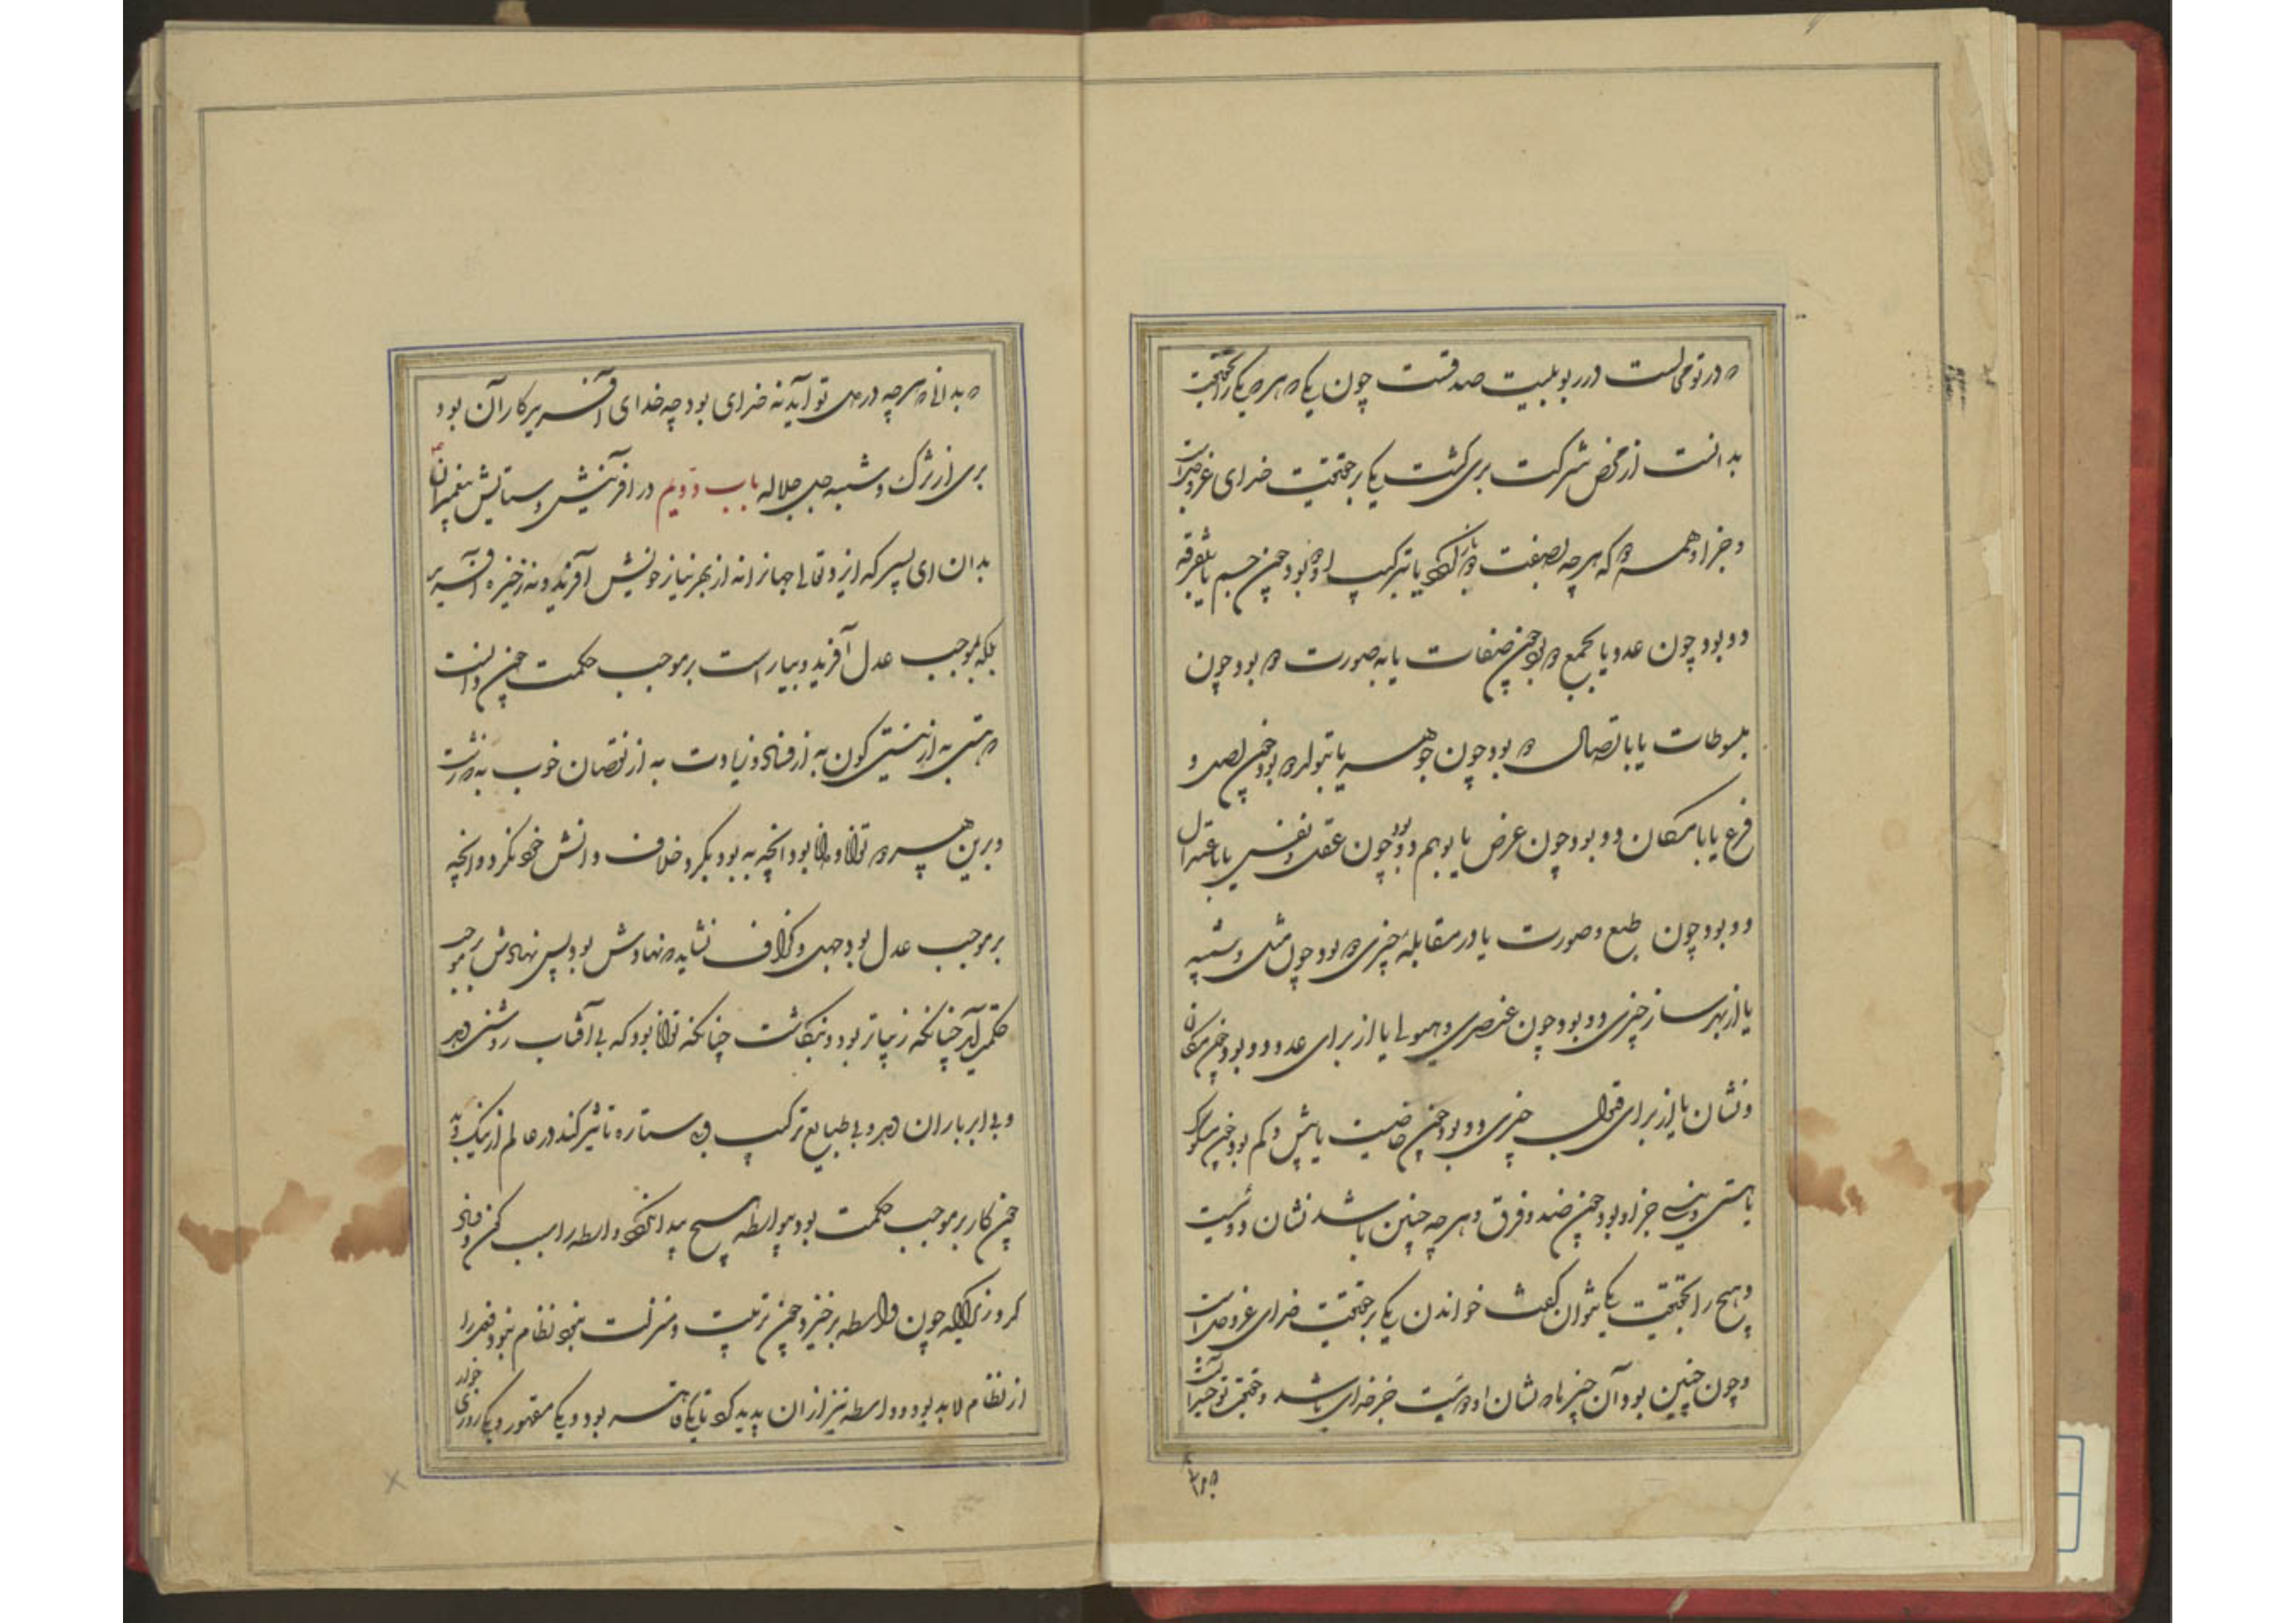 که در تو محالست در ربوبیت صدقست چون یکی که هر که یکی را بحقیقت
بدانست از محض شرکت بری گشت یکی بر حقیقت خدای عز و جل است
و جز او همه دو که هر چه بصفت دو باز گردد یا بترکیب دو بود چون جسم یا بتفرقه
دو بود چون عدد یا بجمع دو بود چون صفات یا به صورت دو بود چون
مبسوطات یا باتصال دو بود چون جوهر یا بتولد دو بود چون اصل و
فرع یا بامکان دو بود چون عرض یا بوهم دو بود چون عقل و نفس یا باعتدال
دو بود چون طبع و صورت یا در مقابلهٔ چیزی دو بود چون مثل و شبه
یا از بهر ساز چیزی دو بود چون عنصری و هیولی یا از برای عدد دو بود چون مکان
و نشان یا از برای قبول چیزی دو بود چون خاصیت یا بیش و کم بود چون مشکوک
یا هستی و نیستی جز او بود چون ضد و فرق و هر چه چنین باشد نشان دوئیست
و هیچ را بحقیقت یکی نتوان گفت خواندن یکی بر حقیقت خدای عز و جل است
و چون چنین بود آن چیزها که نشان دوئیست جز خدای باشد و حقیقت توحید آنست
که بدانی که هر چه در دل تو آید نه خدای بود چه خدای آفریدگار آن بود
بری از شرک و شبه جل جلاله باب دویم در آفرینش و ستایش پیغمبران
بدان ای پسر که ایزد تعالی جهانرا نه از بهر نیاز خویش آفرید و نه بر خیره آفرید
بلکه بموجب عدل آفرید و بیاراست بر موجب حکمت چون دانست
که هستی به از نیستی کون به از فساد و زیادت به از نقصان خوب به که زشت
و برین هر دو توانا و دانا بود آنچه به بود بکرد و خلاف دانش خود نکرد و آنچه
بر موجب عدل بود جهل و گزاف نشاید که نهادش بود پس نهادش بر موجب
حکمت آمد چنانکه زیباتر بود بنگاشت چنانکه توانا بود که بی آفتاب روشنی دهد
و بی ابر باران دهد و بی طبایع ترکیب و بی ستاره تاثیر کند در عالم از نیک و بد
چون کار بر موجب حکمت بود بیواسطه هیچ پیدا نکرد و واسطه را سبب کون و فساد
کرد زیرا که چون واسطه برخیزد چون ترتیب و منزلت نبود نظام نبود و فعل را
از نظام لابد بود و واسطه نیز از آن پدید کرد تا یکی قاهر بود و یکی مقهور و یکی روزی خور